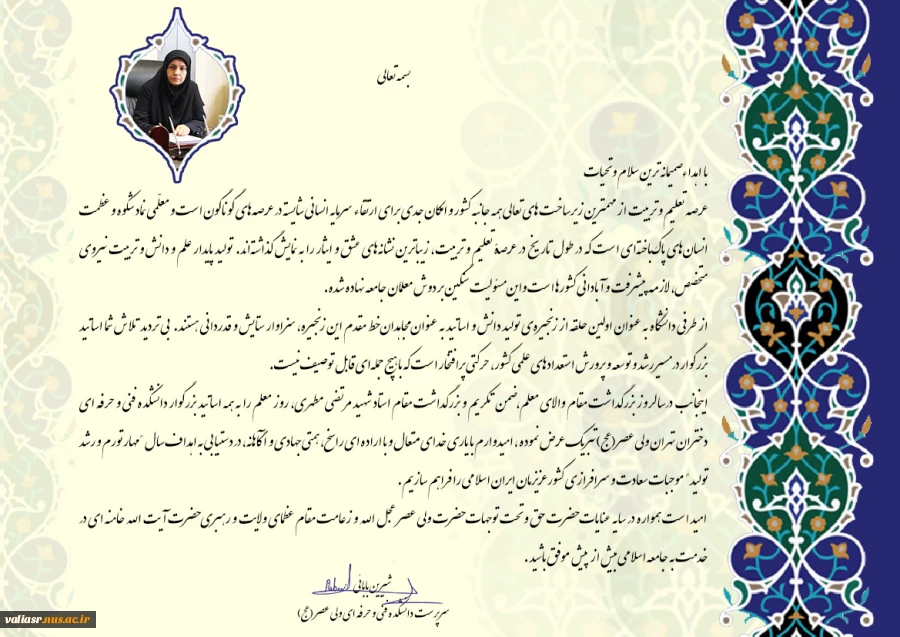 بسمه تعالی
با اهداء صمیمانه ترین سلام و تحیات
عرصه تعلیم و تربیت از مهمترین زیرساخت های تعالی همه جانبه کشور و امکان جدی برای ارتقاء سرمایه انسانی شایسته در عرصه های گوناگون است و معلّمی نماد شکوه و عظمت
انسان های پاک باخته ای است که در طول تاریخ در عرصۀ تعلیم و تربیت، زیباترین نشانه های عشق و ایثار را به نمایش گذاشته‌اند. تولید پایدار علم و دانش و تربیت نیروی
متخصص، لازمه پیشرفت و آبادانی کشورها است و این مسئولیت سنگین بر دوش معلمان جامعه نهاده شده.
از طرفی دانشگاه به عنوان اولین حلقه از زنجیره‌ی تولید دانش و اساتید به عنوان مجاهدان خط مقدم این زنجیره، سزاوار ستایش و قدردانی هستند. بی تردید تلاش شما اساتید
بزرگوار در مسیر رشد و توسعه و پرورش استعدادهای علمی کشور، حرکتی پر افتخار است که با هیچ جمله ای قابل توصیف نیست.
اینجانب در سالروز بزرگداشت مقام والای معلم، ضمن تکریم و بزرگداشت مقام استاد شهید مرتضی مطهری، روز معلم را به همه اساتید بزرگوار دانشکده فنی و حرفه ای
دختران تهران ولی عصر(عج) تبریک عرض نموده، امیدوارم با یاری خدای متعال و با اراده ای راسخ، همتی جهادی و آگاهانه، در دستیابی به اهداف سال "مهار تورم و رشد
تولید" موجبات سعادت و سرافرازی کشور عزیزمان ایران اسلامی را فراهم سازیم.
امید است همواره در سایه عنایات حضرت حق و تحت توجهات حضرت ولی عصر عجل الله و زعامت مقام عظمای ولایت و رهبری حضرت آیت الله خامنه ای در
خدمت به جامعه اسلامی بیش از پیش موفق باشید.
شیرین بابائی
سرپرست دانشکده فنی و حرفه ای ولی عصر(عج)
valiasr.nus.ac.ir